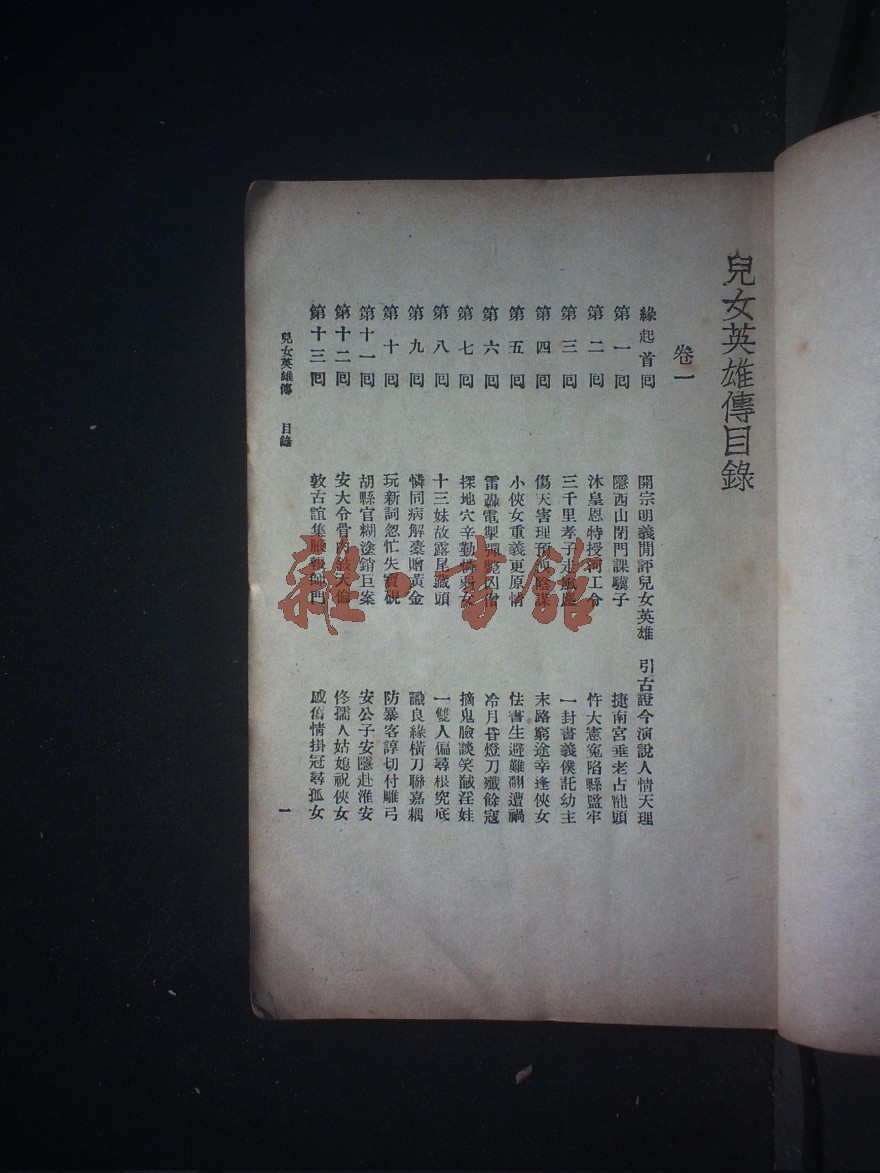 兒女英雄傳目錄
卷一
緣起首囘 開宗明義閒評兒女英雄 引古證今演說人情天理
第一囘 隱西山閉門課驥子 捷南宮垂老占龍頭
第二囘 沐皇恩特授河工令 忤大憲冤陷縣監牢
第三囘 三千里孝子走風塵 一封書義僕託幼主
第四囘 傷天害理預泄陰謀 末路窮途幸逢俠女
第五囘 小俠女重義更原情 怯書生避難翻遭禍
第六囘 雷轟電掣彈斃凶僧 冷月昏燈刀殲餘寇
第七囘 探地穴辛勤憐弱女 摘鬼臉談笑馘淫娃
第八囘 十三妹故露尾藏頭 一雙人偏尋根究底
第九囘 憐同病解橐贈黃金 識良緣橫刀聯嘉耦
第十囘 玩新詞忽忙失寶硯 防暴客諄切付雕弓
第十一囘 胡縣官糊塗銷巨案 安公子安隱赴淮安
第十二囘 安大令骨肉敍天倫 佟孺人姑媳祝俠女
第十三囘 敦古誼集腋報師門 感舊情掛冠尋孤女
兒女英雄傳 目錄 一
雜·書館